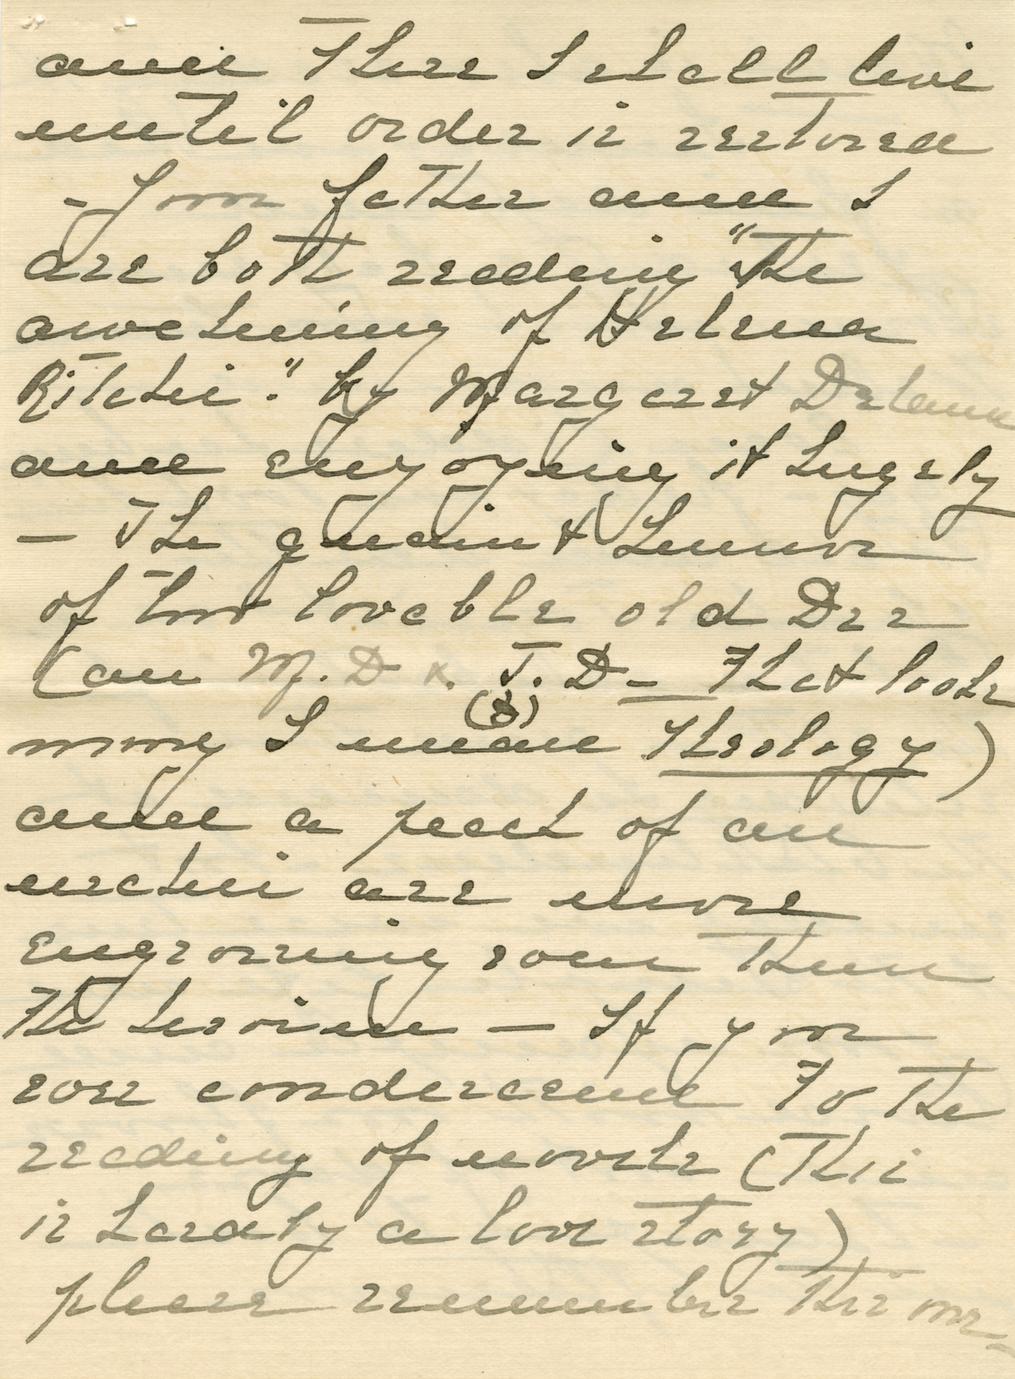 and There I shall live
until order is restored
- Your father and I
are both reading "The
awakening of Helena
Ritchie." by Margaret Deland
and enjoying it hugely
- The quaint humor
of two loveable old Drs
(an M.D & T.D - That looks
wrong I mean Theology)
and a peach of an
urchin are more
engrossing even than
The heroine - If you
ever condescend To The
reading of novels (This
is hardly a love story)
please remember This one-